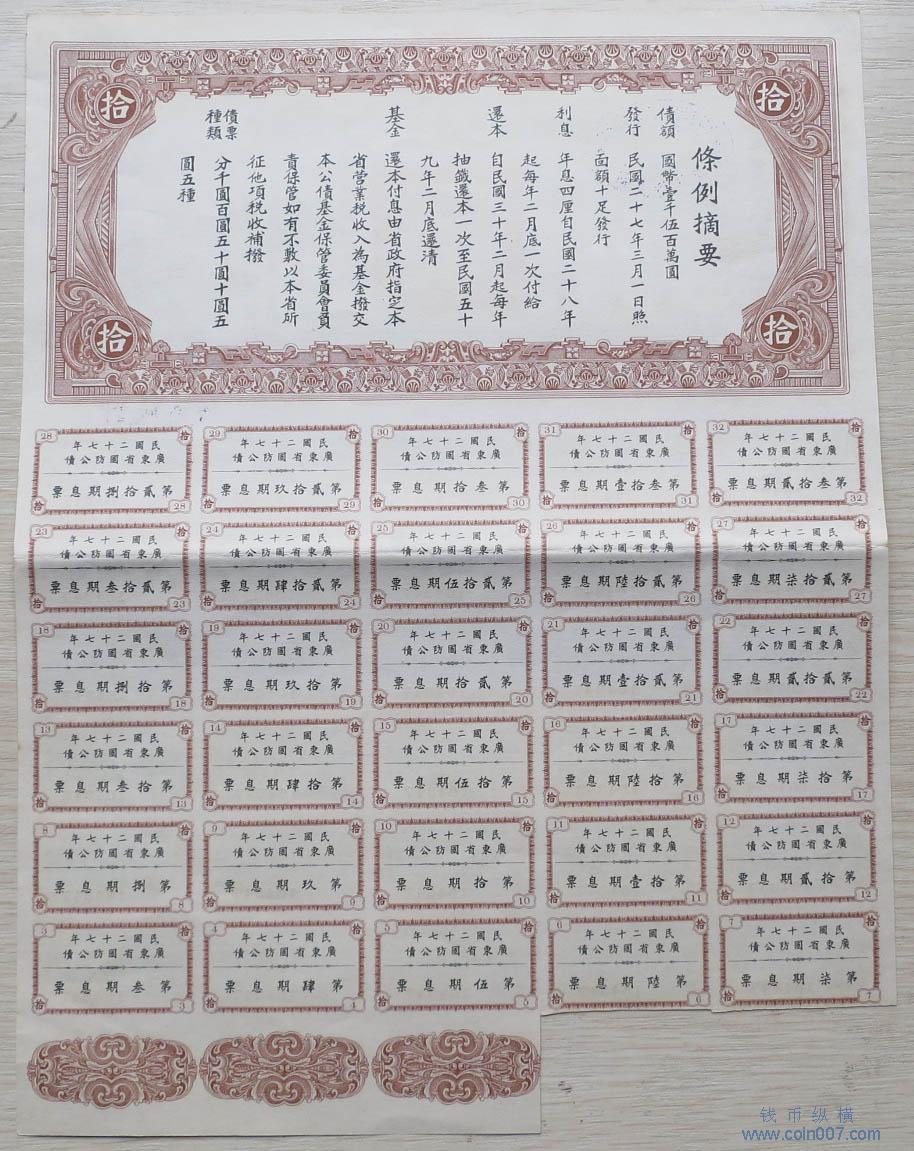 拾
拾
條例摘要
債額 國幣壹千伍百萬圓
發行 民國二十七年三月一日照
面額十足發行
利息 年息四厘自民國二十八年
起每年二月底一次付給
還本 自民國三十年二月起每年
抽籤還本一次至民國五十
九年二月底還清
基金 還本付息由省政府指定本
省營業税收入為基金撥交
本公債基金保管委員會負
責保管如有不敷以本省所
征他項税收補撥
債票種類 分千圓百圓五十圓十圓五
圓五種
拾
拾
28 拾
民國二十七年
廣東省國防公債
第貳拾捌期息票
拾 28
29 拾
民國二十七年
廣東省國防公債
第貳拾玖期息票
拾 29
30 拾
民國二十七年
廣東省國防公債
第叁拾期息票
拾 30
31 拾
民國二十七年
廣東省國防公債
第叁拾壹期息票
拾 31
32 拾
民國二十七年
廣東省國防公債
第叁拾貳期息票
拾 32
23 拾
民國二十七年
廣東省國防公債
第貳拾叁期息票
拾 23
24 拾
民國二十七年
廣東省國防公債
第貳拾肆期息票
拾 24
25 拾
民國二十七年
廣東省國防公債
第貳拾伍期息票
拾 25
26 拾
民國二十七年
廣東省國防公債
第貳拾陸期息票
拾 26
27 拾
民國二十七年
廣東省國防公債
第貳拾柒期息票
拾 27
18 拾
民國二十七年
廣東省國防公債
第拾捌期息票
拾 18
19 拾
民國二十七年
廣東省國防公債
第拾玖期息票
拾 19
20 拾
民國二十七年
廣東省國防公債
第貳拾期息票
拾 20
21 拾
民國二十七年
廣東省國防公債
第貳拾壹期息票
拾 21
22 拾
民國二十七年
廣東省國防公債
第貳拾貳期息票
拾 22
13 拾
民國二十七年
廣東省國防公債
第拾叁期息票
拾 13
14 拾
民國二十七年
廣東省國防公債
第拾肆期息票
拾 14
15 拾
民國二十七年
廣東省國防公債
第拾伍期息票
拾 15
16 拾
民國二十七年
廣東省國防公債
第拾陸期息票
拾 16
17 拾
民國二十七年
廣東省國防公債
第拾柒期息票
拾 17
8 拾
民國二十七年
廣東省國防公債
第捌期息票
拾 8
9 拾
民國二十七年
廣東省國防公債
第玖期息票
拾 9
10 拾
民國二十七年
廣東省國防公債
第拾期息票
拾 10
11 拾
民國二十七年
廣東省國防公債
第拾壹期息票
拾 11
12 拾
民國二十七年
廣東省國防公債
第拾貳期息票
拾 12
3 拾
民國二十七年
廣東省國防公債
第叁期息票
拾 3
4 拾
民國二十七年
廣東省國防公債
第肆期息票
拾 4
5 拾
民國二十七年
廣東省國防公債
第伍期息票
拾 5
6 拾
民國二十七年
廣東省國防公債
第陸期息票
拾 6
7 拾
民國二十七年
廣東省國防公債
第柒期息票
拾 7
钱币纵横
www.coin007.com